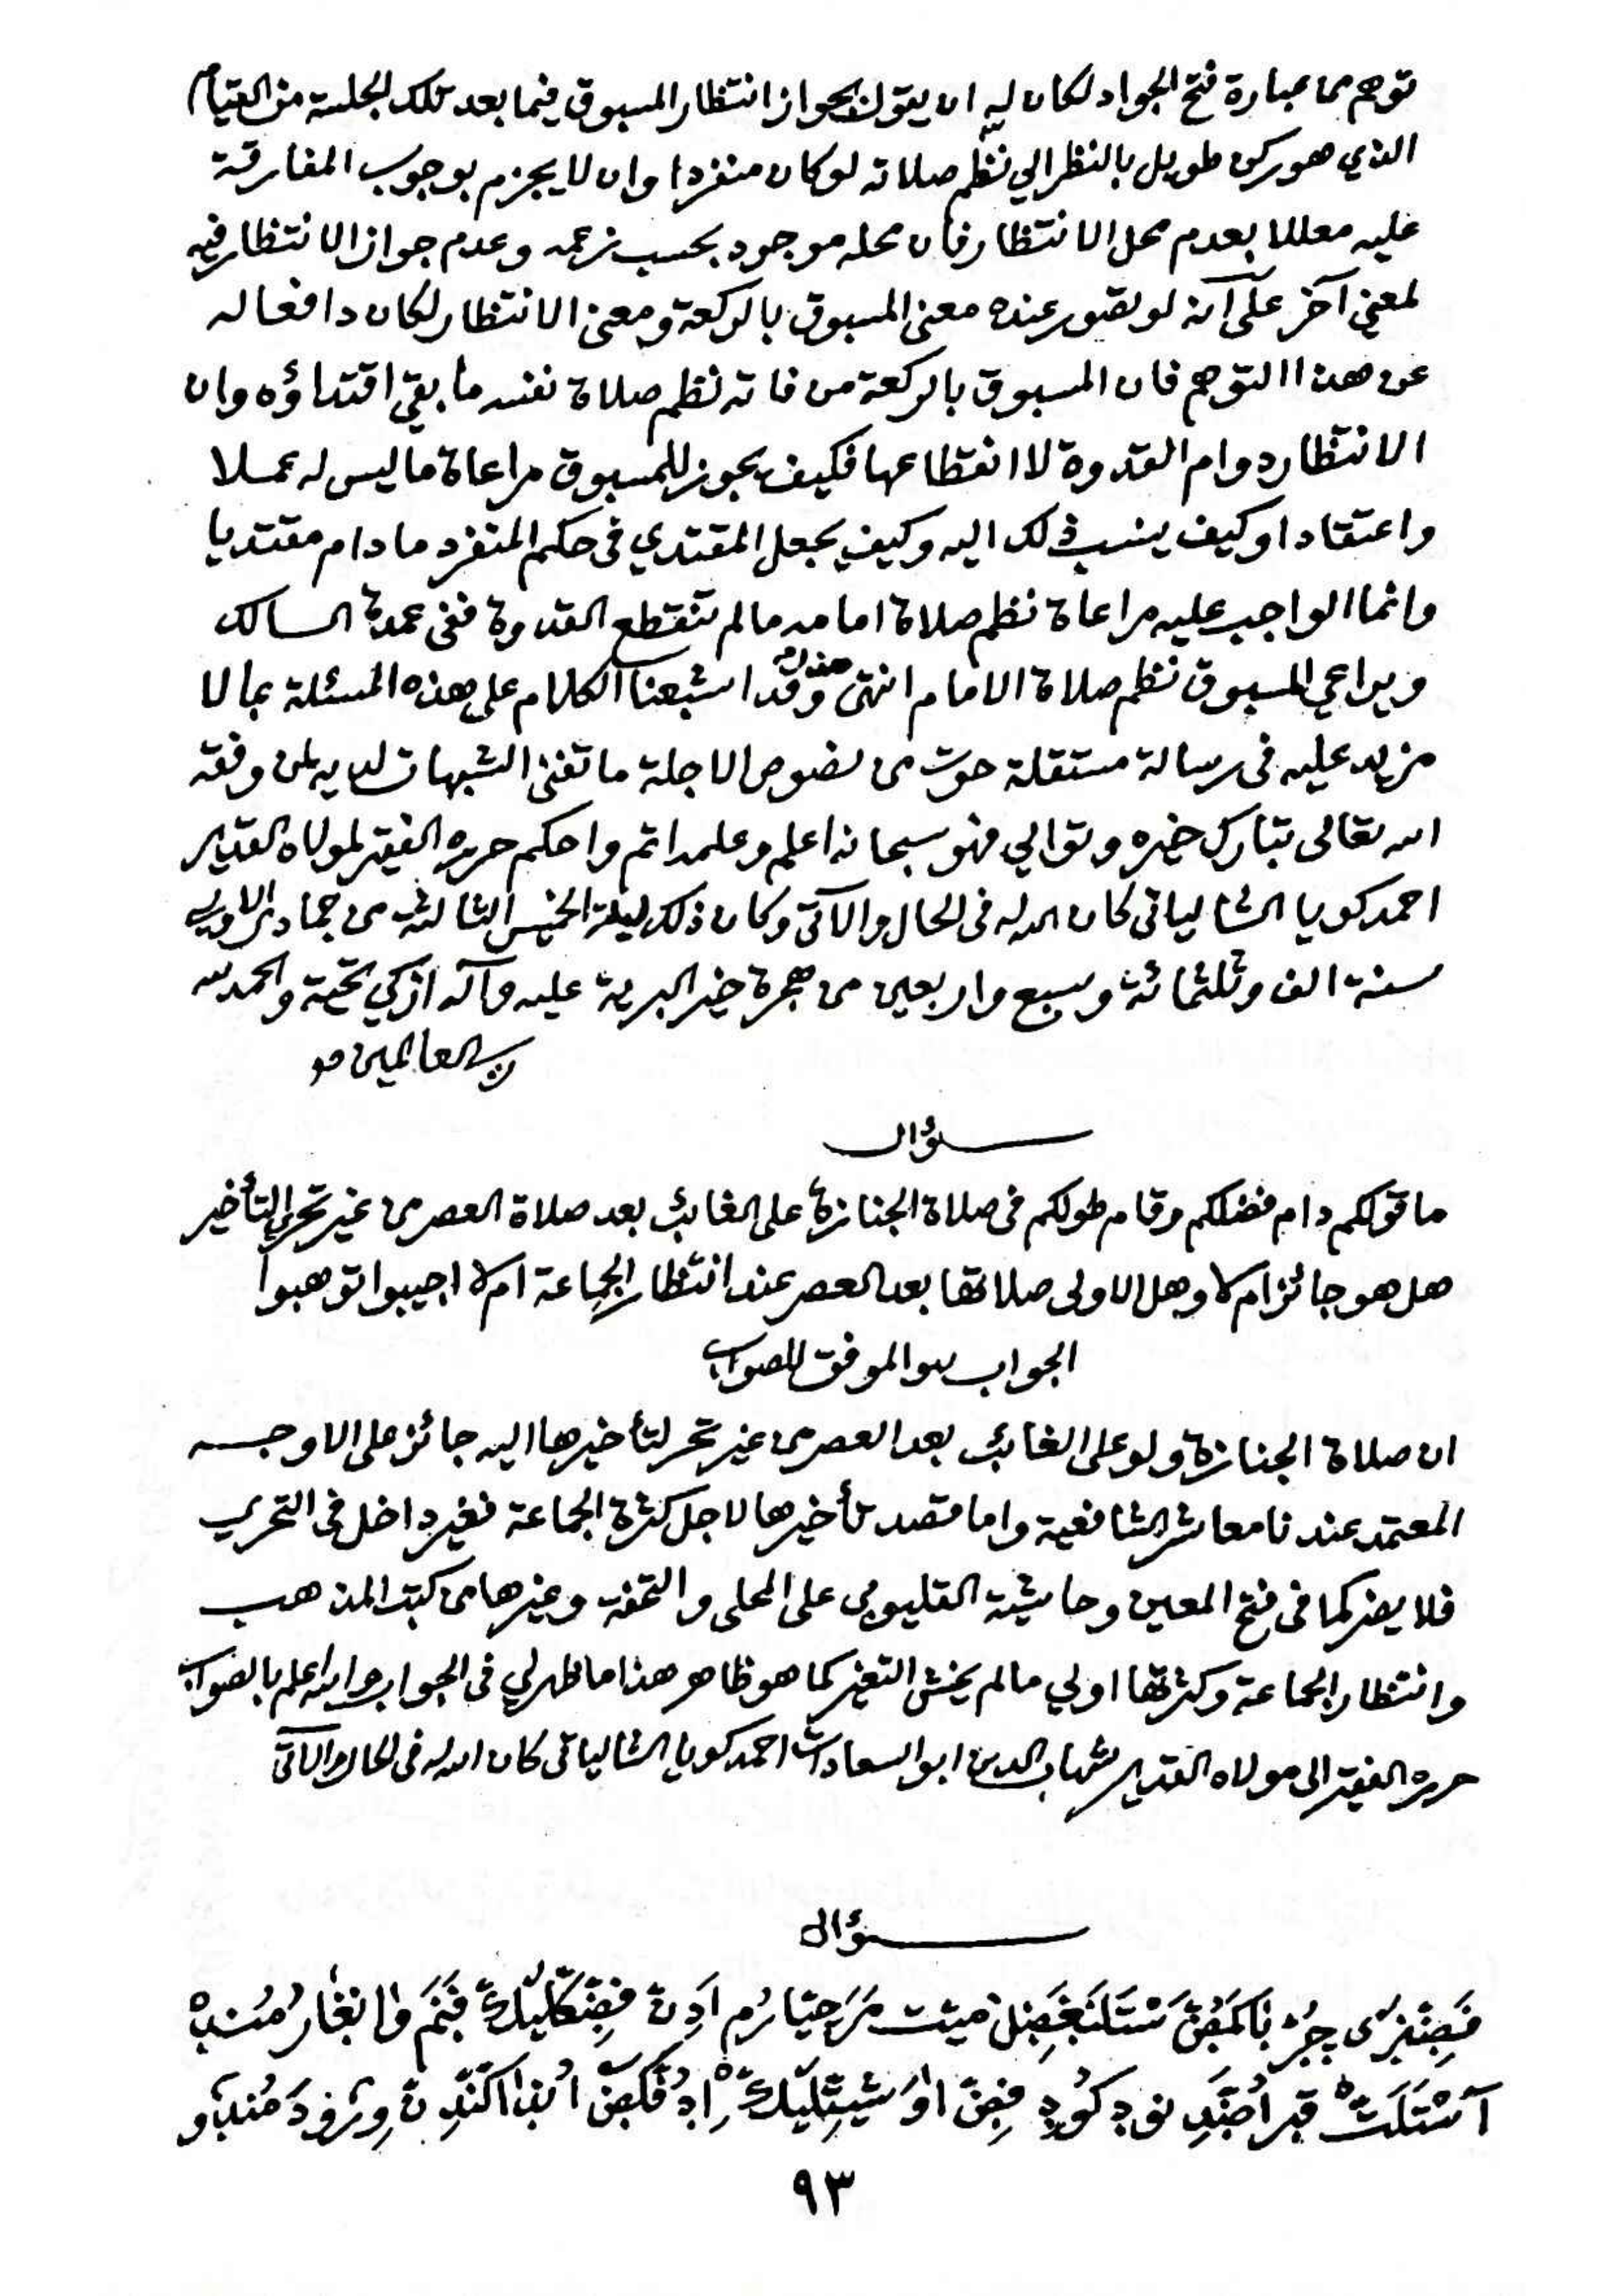 توهم مما بعبارة فتح الجواد لكان له ان يقول بجواز انتظار المسبوق فيما بعد تلك الجلسة من القيام
الذي هو ركن طويل بالنظر الي نظم صلاته لو كان منفردا وان لا يجزم بوجوب المفارقة
عليه معللا بعدم محل الانتظار فان محله موجود بحسب زعمه وعدم جواز الانتظار فيه
لمعنى آخر على آنه لو تصور عنده معنى المسبوق بالركعة ومعنى الانتظار لكان دافعا له
عن هذا التوهم فان المسبوق بالركعة من فاته نظم صلاة نفسه ما بقي اقتداؤه وان
الانتظار دوام القدوة لا انقطاعها فكيف يجوز للمسبوق مراعاة ما ليس له عملا
واعتقادا وكيف ينسب ذلك اليه وكيف يجعل المقتدي في حكم المنفرد ما دام مقتديا
وانما الواجب عليه مراعاة نظم صلاة امامه ما لم تنقطع القدوة ففي عمدة السالك
ويراعي المسبوق نظم صلاة الامام انتهى هذا وقد اشبعنا الكلام على هذه المسئلة بما لا
مزيد عليه في رسالة مستقلة حوت من نصوص الاجلة ما تفنى الشبهات لديه لمن وفقه
الله تعالى تبارك خيره وتوالي فهو سبحانه اعلم وعلمه اتم واحكم حرره الفقير لمولاه القدير
احمد كويا الشالياتي كان الله له في الحال والآتي وكان ذلك ليلة الخميس الثالثة من جمادى الاولى
سنة الف وثلثمائة وسبع واربعين من هجرة خير البرية عليه وآله ازكي تحية والحمد لله
رب العالمين
سؤال
ما قولكم دام فضلكم وقام طولكم في صلاة الجنازة على الغائب بعد صلاة العصر من غير تحري التأخير
هل هو جائز ام لا وهل الاولى صلاتها بعد العصر عند انتظار الجماعة ام لا اجيبوا توهبوا
الجواب هو الموفق للصواب
ان صلاة الجنازة ولو على الغائب بعد العصر من غير تحر لتأخيرها اليه جائز على الاوجه
المعتمد عندنا معاشر الشافعية واما قصد تأخيرها لاجل كثرة الجماعة فغير داخل في التحري
فلا يضر كما في فتح المعين وحاشية القليوبي على المحلى والتحفة وغيرها من كتب المذهب
وانتظار الجماعة وكثرتها اولي ما لم يخش التغير كما هو ظاهر هذا ما ظهر لي في الجواب والله اعلم بالصواب
حرره الفقير الى مولاه القدير شهاب الدين ابو السعادات احمد كويا الشالياتي كان الله له في الحال والآتي
سؤال
٩٣